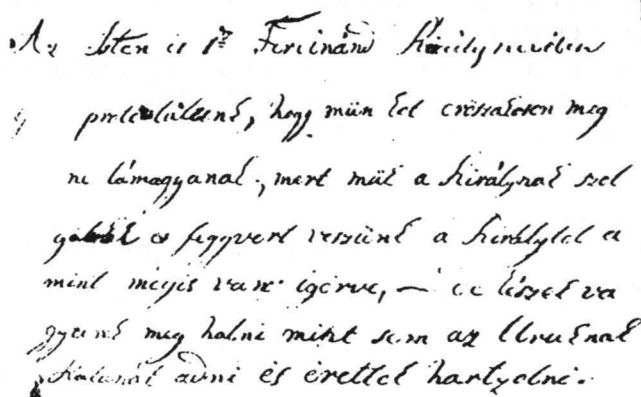 Az Isten és 1ső Ferdinánd Király nevében
protestálunk, hogy münket erőszakosan meg
ne támagyanak, mert mük a Királynak szol
gái és fegyvert veszünk a Királytol a
mint meg is van igérve, – de készek va
gyunk meg halni mint sem az Uruknak
Katonát adni és érettek hartzolni.